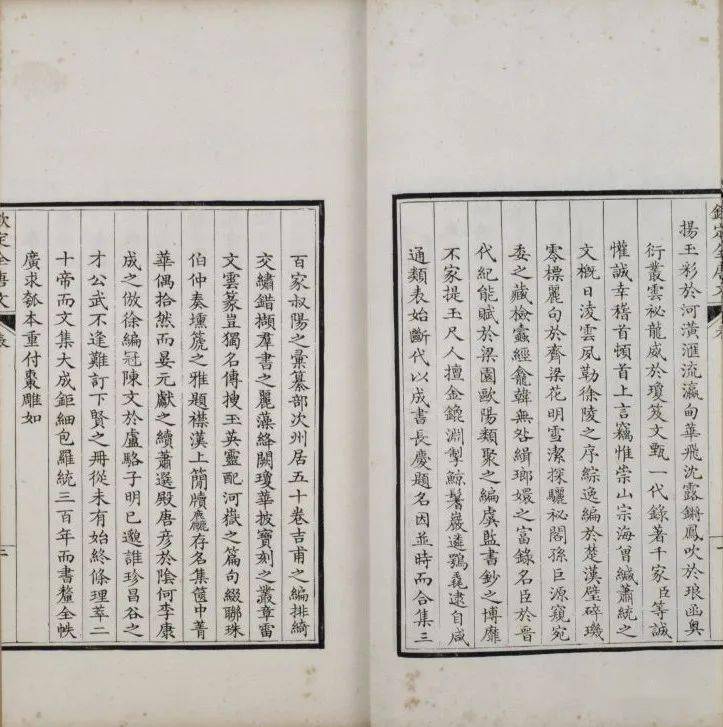 欽定全唐文
揚玉彩於河潢滙流瀛甸華飛沈露鏘鳳吹於琅函奥
衍叢雲祕龍威於瓊笈文甄一代錄著千家臣等誠
懽誠幸稽首頓首上言竊惟崇山宗海曾緘蕭統之
文概日淩雲夙勒徐陵之序綜逸編於楚漢璧碎璣
零標麗句於齊梁花明雪潔探驪祕閣孫巨源窺宛
委之藏檢蠹經龕韓無咎緝瑯嬛之富錄名臣於晉
代紀能賦於梁園歐陽類聚之編虞監書鈔之博靡
不家提玉尺人擅金鎞淵掣鯨鬐巖遴鶚毳逮自咸
通類表始斷代以成書長慶題名因並時而合集三
百家叔陽之彙纂部次州居五十卷吉甫之編排綺
交繡錯擷羣書之麗藻絳闕瓊華披寶刻之叢章雷
文雲篆豈獨名傳搜玉英靈配河嶽之篇句綴聯珠
伯仲奏壎箎之雅題襟漢上簡牘麤存名集篋中菁
華偶拾然而晏元獻之續蕭選殿唐彥於陰何李康
成之倣徐編冠陳文於盧駱子明已邈誰珍昌谷之
才公武不逢難訂下賢之冊從未有始終條理萃二
十帝而文集大成鉅細包羅統三百年而書釐全帙
廣求瓠本重付棗雕如
欽定全唐文
表
三